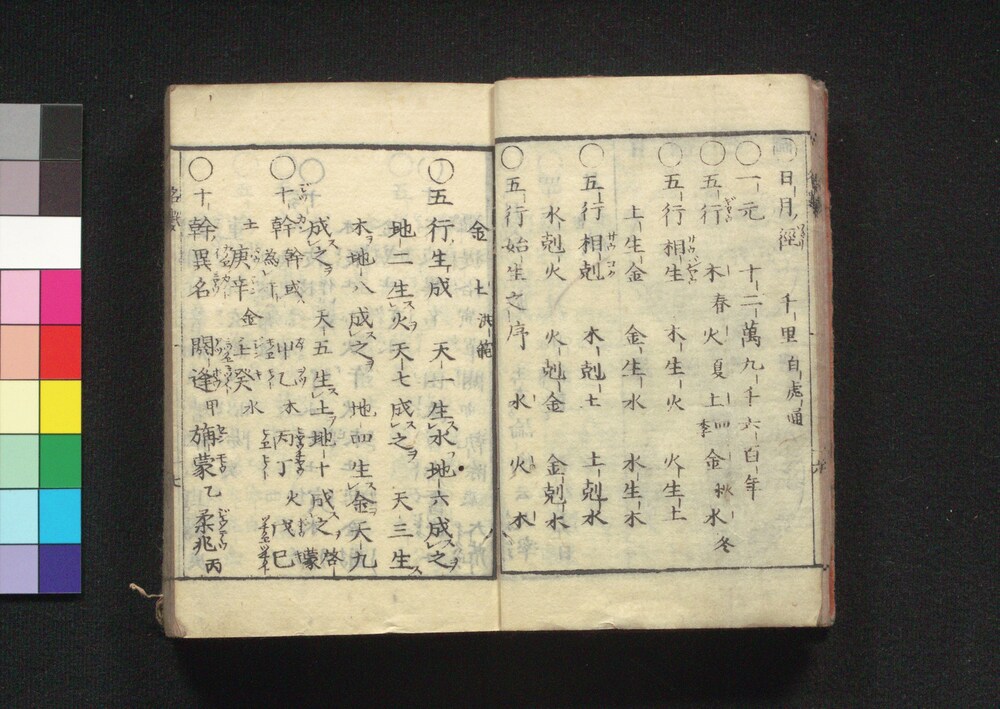 〇日月徑 千里白虎通
〇一元 十二萬九千六百年
〇五行 木春火夏土四季金秋水冬
〇五行相生 木生火 火生土
土生金 金生水 水生木
〇五行相剋 木剋土 土剋水
水剋火 火剋金 金剋木
〇五行始生之序 水 火 木
金 土 洪範
〇五行生成 天一生水地六成之
地二生火天七成之 天三生
木地八成之 地四生金天九
成之 天五生土地十成之 啓蒙
〇十幹 幹或為干 甲乙木丙丁火戊巳
土庚辛金壬癸水
〇十幹異名 閼逢甲旃蒙乙柔兆丙